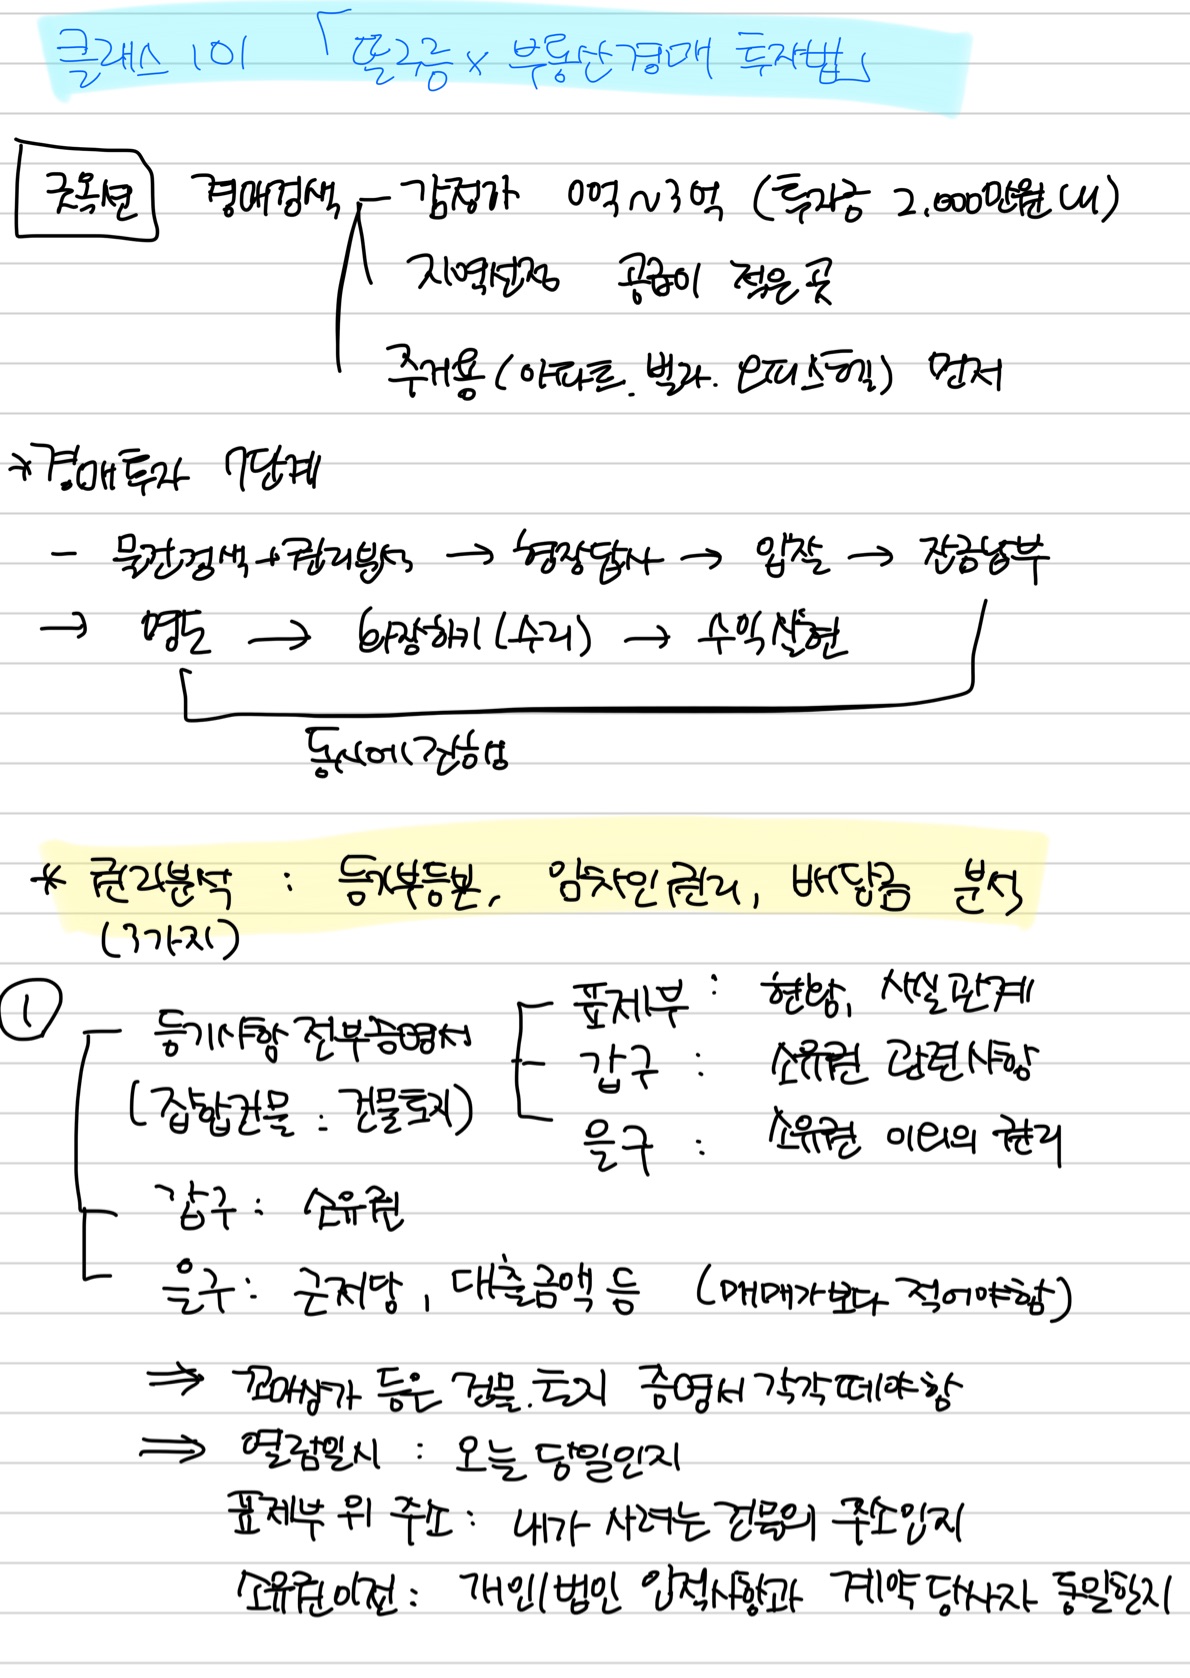 클래스101 「똘구름 x 부동산경매 투자법」
굿옥션 경매검색 - 감정가 0억~3억 (투자금 2,000만원 내)
지역선정 공급이 적은 곳
주거용(아파트. 빌라. 오피스텔) 먼저
*경매투자 7단계
- 물건검색+권리분석 → 현장답사 → 입찰 → 잔금납부
→ 명도 → 화장하기(수리) → 수익실현
동시에 진행
* 권리분석 : 등기부등본, 임차인권리, 배당금 분석
(3가지)
① 등기사항전부증명서
(집합건물 : 건물토지)
표제부 : 현황, 사실관계
갑구 : 소유권 관련사항
을구 : 소유권 이외의 권리
갑구 : 소유권
을구 : 근저당, 대출금액 등 (매매가보다 적어야함)
⇒ 꼬마상가 등은 건물. 토지 증명서 각각 떼야함
⇒ 열람일시 : 오늘 당일인지
표제부 위 주소 : 내가 사려는 건물의 주소인지
소유권이전 : 개인/법인 인적사항과 계약당사자 동일한지